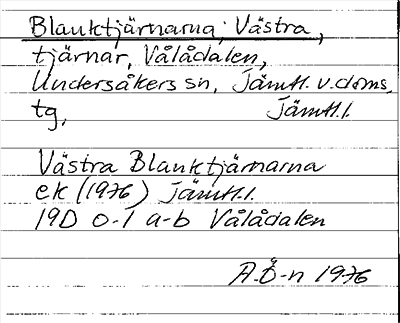 Blanktjärnarna, Västra,
tjärnar, Vålådalen,
Undersåkers sn, Jämtl. v. doms.
tg, Jämtl. l.
Västra Blanktjärnarna
ek (1976) Jämtl. l.
19D 0-1 a-b Vålådalen
A.Ö-n 1976